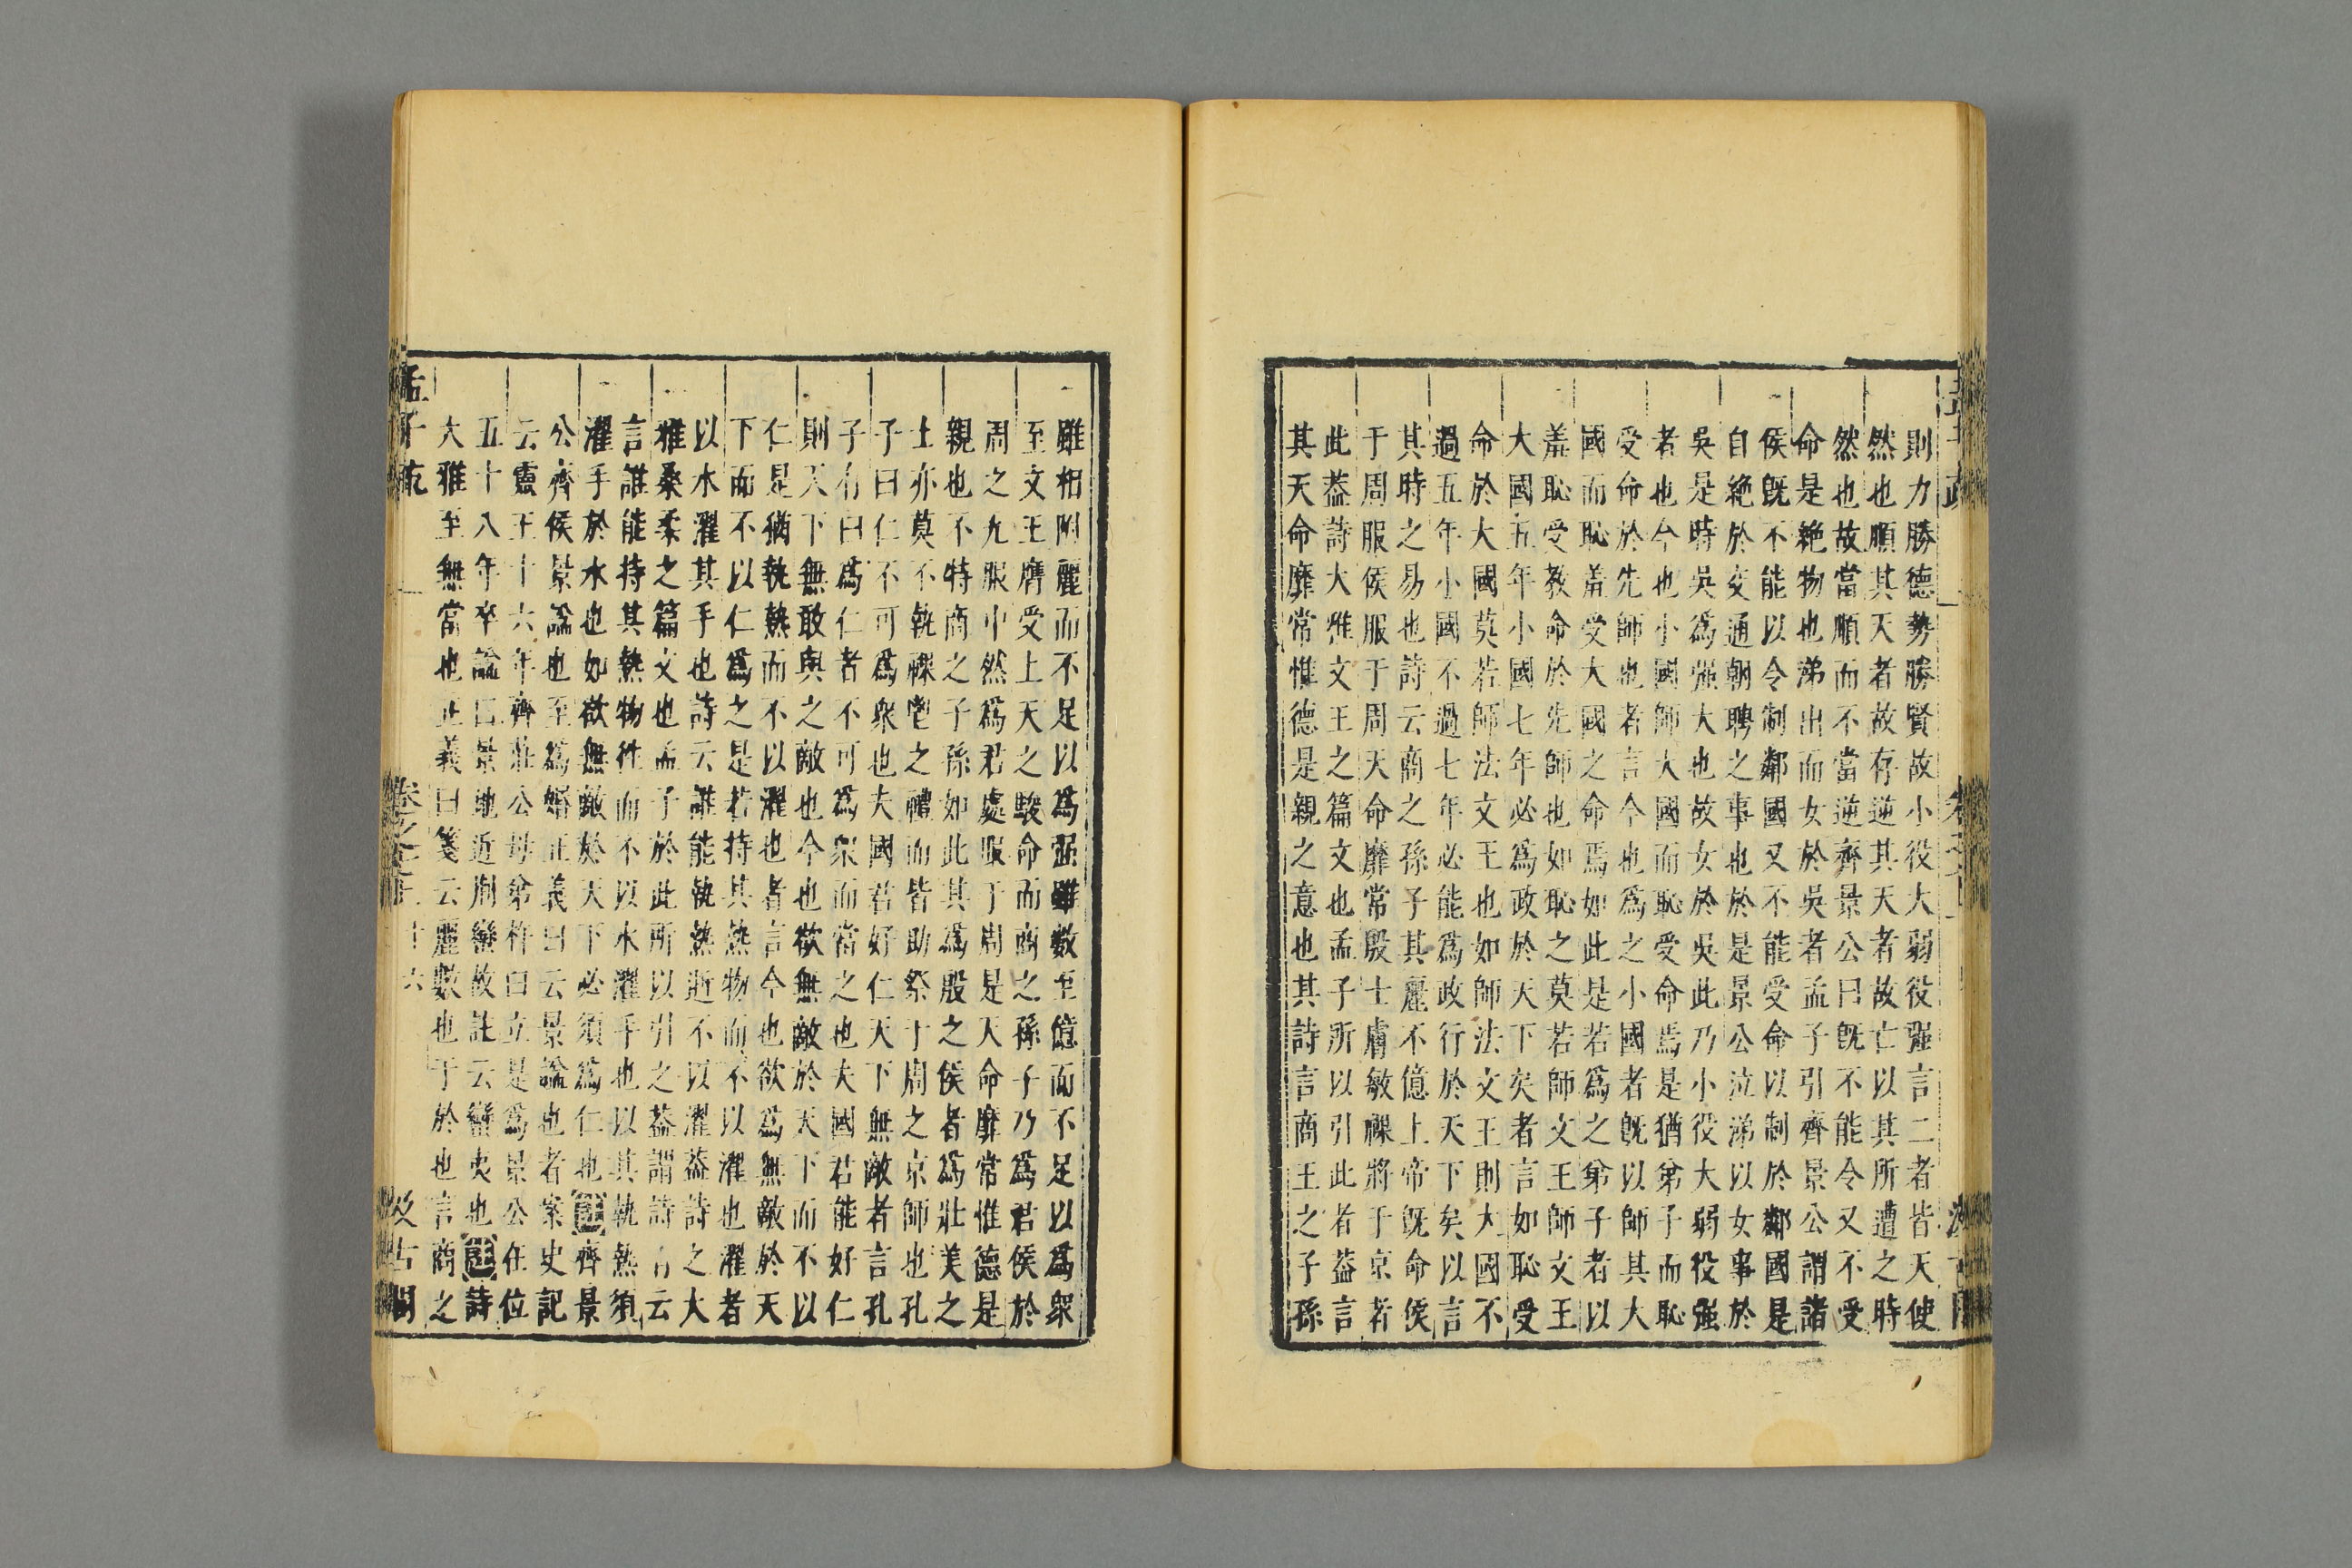 則力勝德勢勝賢故小役大弱役强言二者皆天使
然也順其天者故存逆其天者故亡以其所遭之時
然也故當順而不當逆齊景公曰旣不能令又不受
命是絶物也涕出而女於吳者孟子引齊景公謂諸
侯旣不能以令制鄰國又不能受命以制於鄰國是
自絶於交通朝聘之事也於是景公泣涕以女事於
吳是時吳爲强大也故女於吳此乃小役大弱役强
者也今也小國師大國而恥受命焉是猶弟子而恥
受命於先師也者言今也爲之小國者旣以師其大
國而恥羞受大國之命焉如此是若爲之弟子者以
羞恥受教命於先師也如恥之莫若師文王師文王
大國五年小國七年必爲政於天下矣者言如恥受
命於大國莫若師法文王也如師法文王則大國不
過五年小國不過七年必能爲政行於天下矣以言
其時之易也詩云商之孫子其麗不億上帝旣命侯
于周服侯服于周天命靡常殷士膚敏祼將于京者
此葢詩大雅文王之篇文也孟子所以引此者葢言
其天命靡常惟德是親之意也其詩言商王之子孫
雖相附麗而不足以爲强雖數至億而不足以爲衆
至文王膺受上天之駿命而商之孫子乃爲君侯於
周之九服中然爲君處服于周是天命靡常惟德是
親也不特商之子孫如此其爲殷之侯者爲壯美之
士亦莫不執祼鬯之禮而皆助祭于周之京師也孔
子曰仁不可爲衆也夫國君好仁天下無敵者言孔
子有曰爲仁者不可爲衆而當之也夫國君能好仁
則天下無敢與之敵也今也欲無敵於天下而不以
仁是猶執熱而不以濯也者言今也欲爲無敵於天
下而不以仁爲之是若持其熱物而不以濯也濯者
以水濯其手也詩云誰能執熱逝不以濯葢詩之大
雅桑柔之篇文也孟子於此所以引之葢謂詩有云
言誰能持其熱物往而不以水濯手也以其執熱須
濯手於水也如欲無敵於天下必須爲仁也註齊景
公齊侯景謚也至爲婚正義曰云景謚也者案史記
云靈王十六年齊莊公母弟杵曰立是爲景公在位
五十八年卒謚曰景地近荆蠻故註云蠻夷也註詩
大雅至無當也正義曰箋云麗數也于於也言商之
孟子疏 卷七上 十六 汲古閣